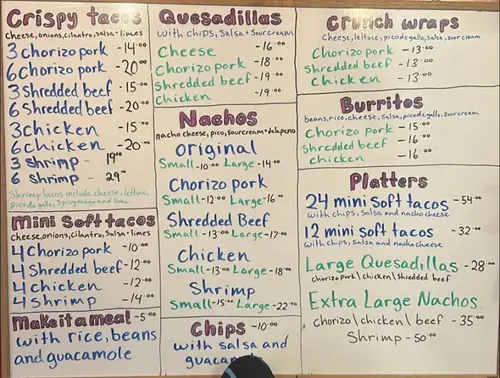 Crispy tacos
cheese, onions, cilantro, salsa + limes
3 Chorizo pork -14.00
6 Chorizo pork -20.00
3 Shredded beef -15.00
6 Shredded beef -20.00
3 chicken -15.00
6 chicken -20.00
3 shrimp - 19.00
6 shrimp - 29.00
Shrimp tacos include cheese, lettuce,
Pico de gallo, Spicy mayo and lime.
Mini Soft tacos
cheese, onions, cilantro, Salsa + limes
4 Chorizo pork -10.00
4 Shredded beef -12.00
4 chicken -12.00
4 shrimp -14.00
Make it a meal -5.00
with rice, beans
and guacamole
Quesadillas
with chips, salsa + sour cream
Cheese -16.00
Chorizo pork -18.00
Shredded beef -19.00
Chicken -19.00
Nachos
nacho cheese, pico, sour cream + Jalapeno
original
Small -10.00 Large -14.00
Chorizo pork
Small -12.00 Large -16.00
Shredded Beef
Small -13.00 Large -17.00
Chicken
Small -13.00 Large -18.00
Shrimp
Small -15.00 Large -22.00
Chips -10.00
with salsa and
Crunch wraps
Cheese, lettuce, pico de gallo, salsa, sour cream
Chorizo pork -13.00
Shredded beef -13.00
Chicken -13.00
Burritos
beans, rice, cheese, salsa, pico de gallo, sour cream
Chorizo pork -15.00
Shredded beef -16.00
chicken -16.00
Platters
24 mini Soft tacos -54.00
with chips, salsa and nacho cheese
12 mini Soft tacos -32.00
with chips, salsa and nacho cheese
Large Quesadillas -28.00
chorizo pork \ chicken \ shredded beef
Extra Large Nachos
chorizo \ chicken \ beef -35.00
Shrimp -50.00